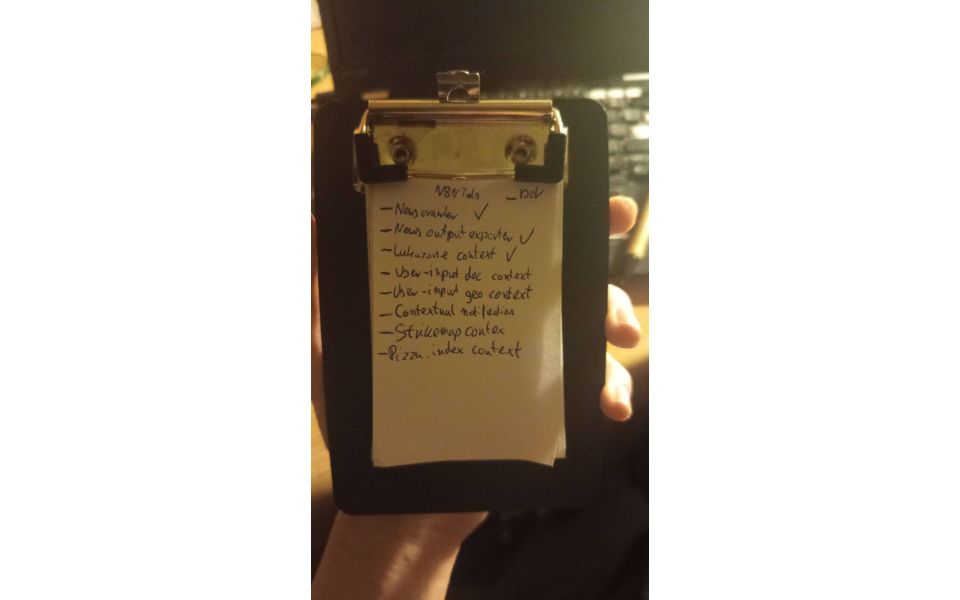 _Dev
- News crawler ✓
- News output exporter ✓
- Lukuzone context ✓
- User-input doc context
- User-input geo context
- Contextual notification
- Strikemap contex
- Pizza.index context